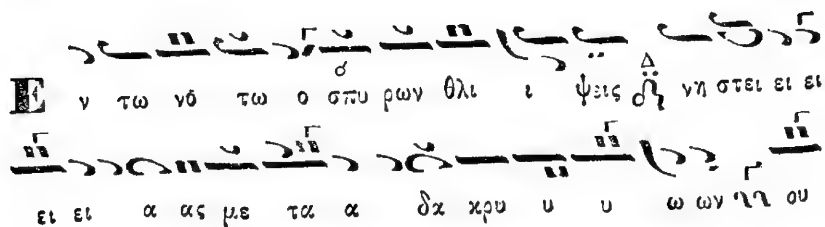 Ε ν τω νό τω ο σπυ ρων θλι ι ψεις νη στει ει ει
ει ει α ας με τα α δα κρυ υ υ ω ων ου